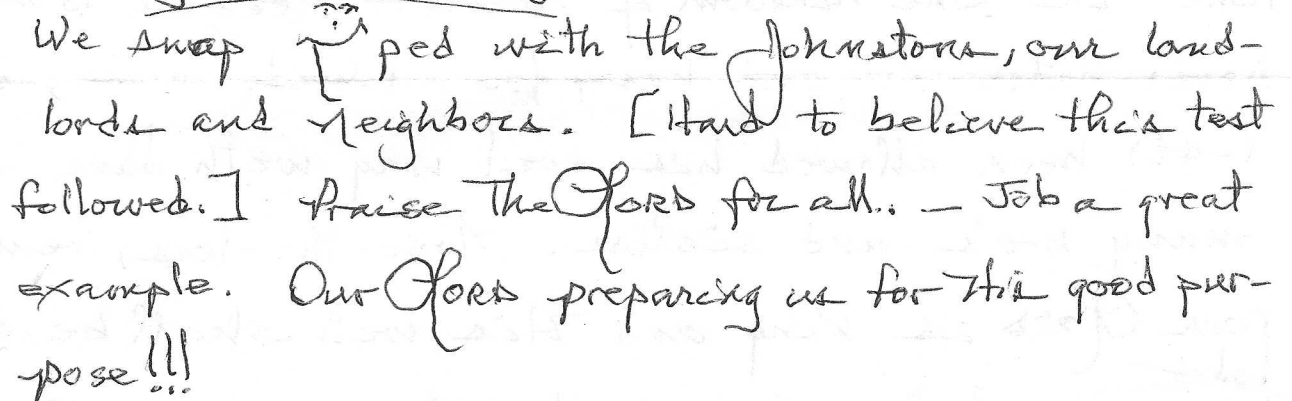 We swapped with the Johnstons, our land-
lords and neighbors. [Hard to believe this test
followed.] Praise The LORD for all.. — Job a great
example. Our LORD preparing us for His good pur-
pose!!!